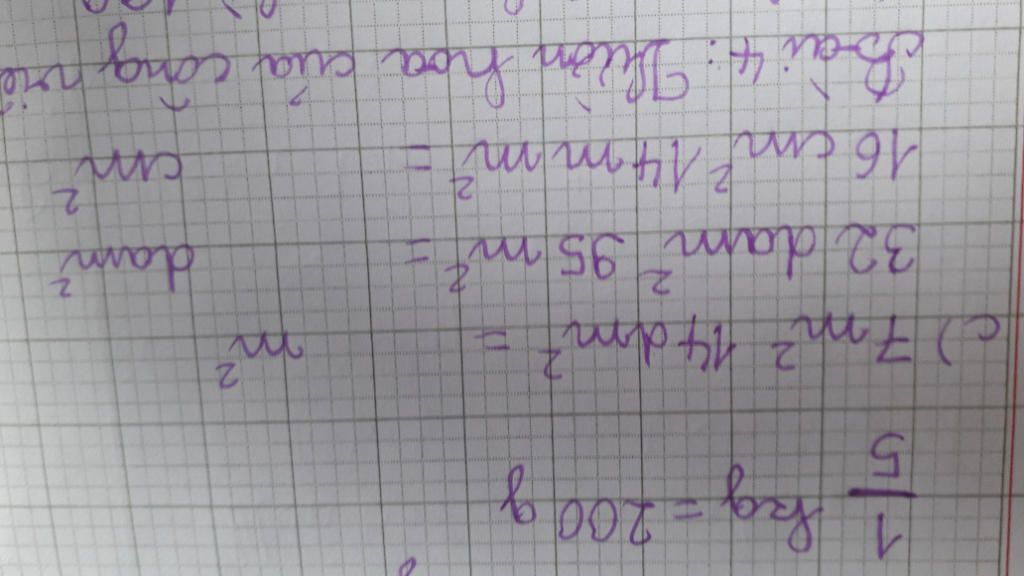 1/5 kg = 200 g
c) 7m² 14dm² = m²
32 dam² 95 m² = dam²
16 cm² 14mm² = cm²
Bài 4: Vườn hoa của công viê